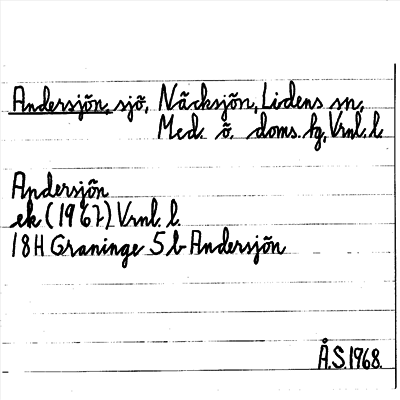 Andersjön, sjö, Näcksjön, Lidens sn,
Med. ö. doms. fg, Vrnl. l.
Andersjön
ek (1967) Vrnl. l.
18H Graninge 5 b Andersjön
Å.S. 1968.